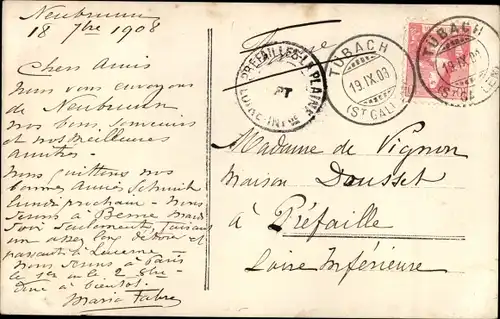 Neubrunn
18 7bre 1908
Chers Amis
Nous vous envoyons
de Neubrunn
nos bons souvenirs
et nos meilleures
amitiés.
Nous quittons nos
bonnes Amies Schmidt
lundi prochain - Nous
serons à Berne mardi
soir seulement, faisant
un assez long détour et
passant à Lucerne -
Nous serons à Paris
le 1er ou le 2 8bre
à bientôt.
Maria Fabre
Suisse
PREFAILLES-LA PLAINE
PT
LOIRE-INFRE
TÜBACH
19.IX.08
(ST GALL)
TÜBACH
19.IX.08
(ST GALLEN)
Madame de Vignon
Maison Dousset
à Préfaille
Loire Inférieure